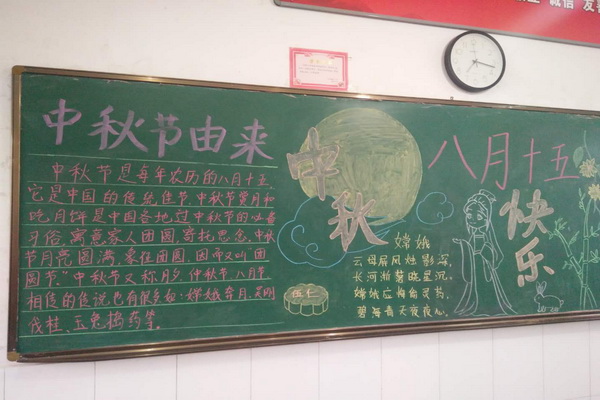 诚信 友善
中秋节由来
中秋节是每年农历的八月十五,
它是中国的传统佳节,中秋节赏月和
吃月饼是中国各地过中秋节的必备
习俗,寓意家人团圆,寄托思念,中秋
节月亮圆满,象征团圆,因而又叫"团
圆节"中秋节又称月夕,仲秋节,八月节
相传的传说也有很多如:嫦娥奔月、吴刚
伐桂、玉兔捣药等。
中秋
八月十五
快乐
五仁
嫦娥
云母屏风烛影深,
长河渐落晓星沉。
嫦娥应悔偷灵药,
碧海青天夜夜心。